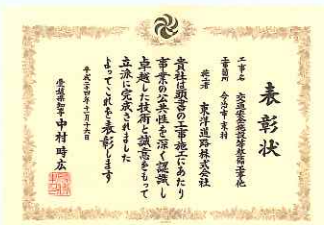 表彰状
工事名 交通安全施設等整備工事他
工事箇所 今治市東村
施工者 東洋道路株式会社
貴社は頭書の工事施工にあたり
事業の公共性を深く認識し
卓越した技術と誠意をもって
立派に完成されました
よってこれを表彰します
平成二十四年十二月十六日
愛媛県知事 中村時広